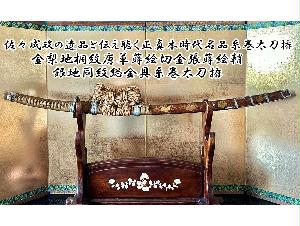 佐々成政の遺品と伝え聴く正真本時代名品糸巻太刀拵
金梨地桐紋唐草蒔絵切金張蒔絵鞘
銀地同紋総金具糸巻太刀拵